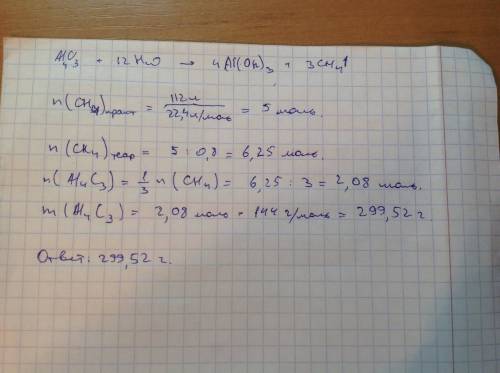 Al₄C₃ + 12H₂O → 4Al(OH)₃ + 3CH₄↑
n(CH₄)практ = 112 л / 22,4 л/моль = 5 моль.
n(CH₄)теор = 5 : 0,8 = 6,25 моль.
n(Al₄C₃) = 1/3 n(CH₄) = 6,25 : 3 = 2,08 моль.
m(Al₄C₃) = 2,08 моль · 144 г/моль = 299,52 г.
Ответ: 299,52 г.